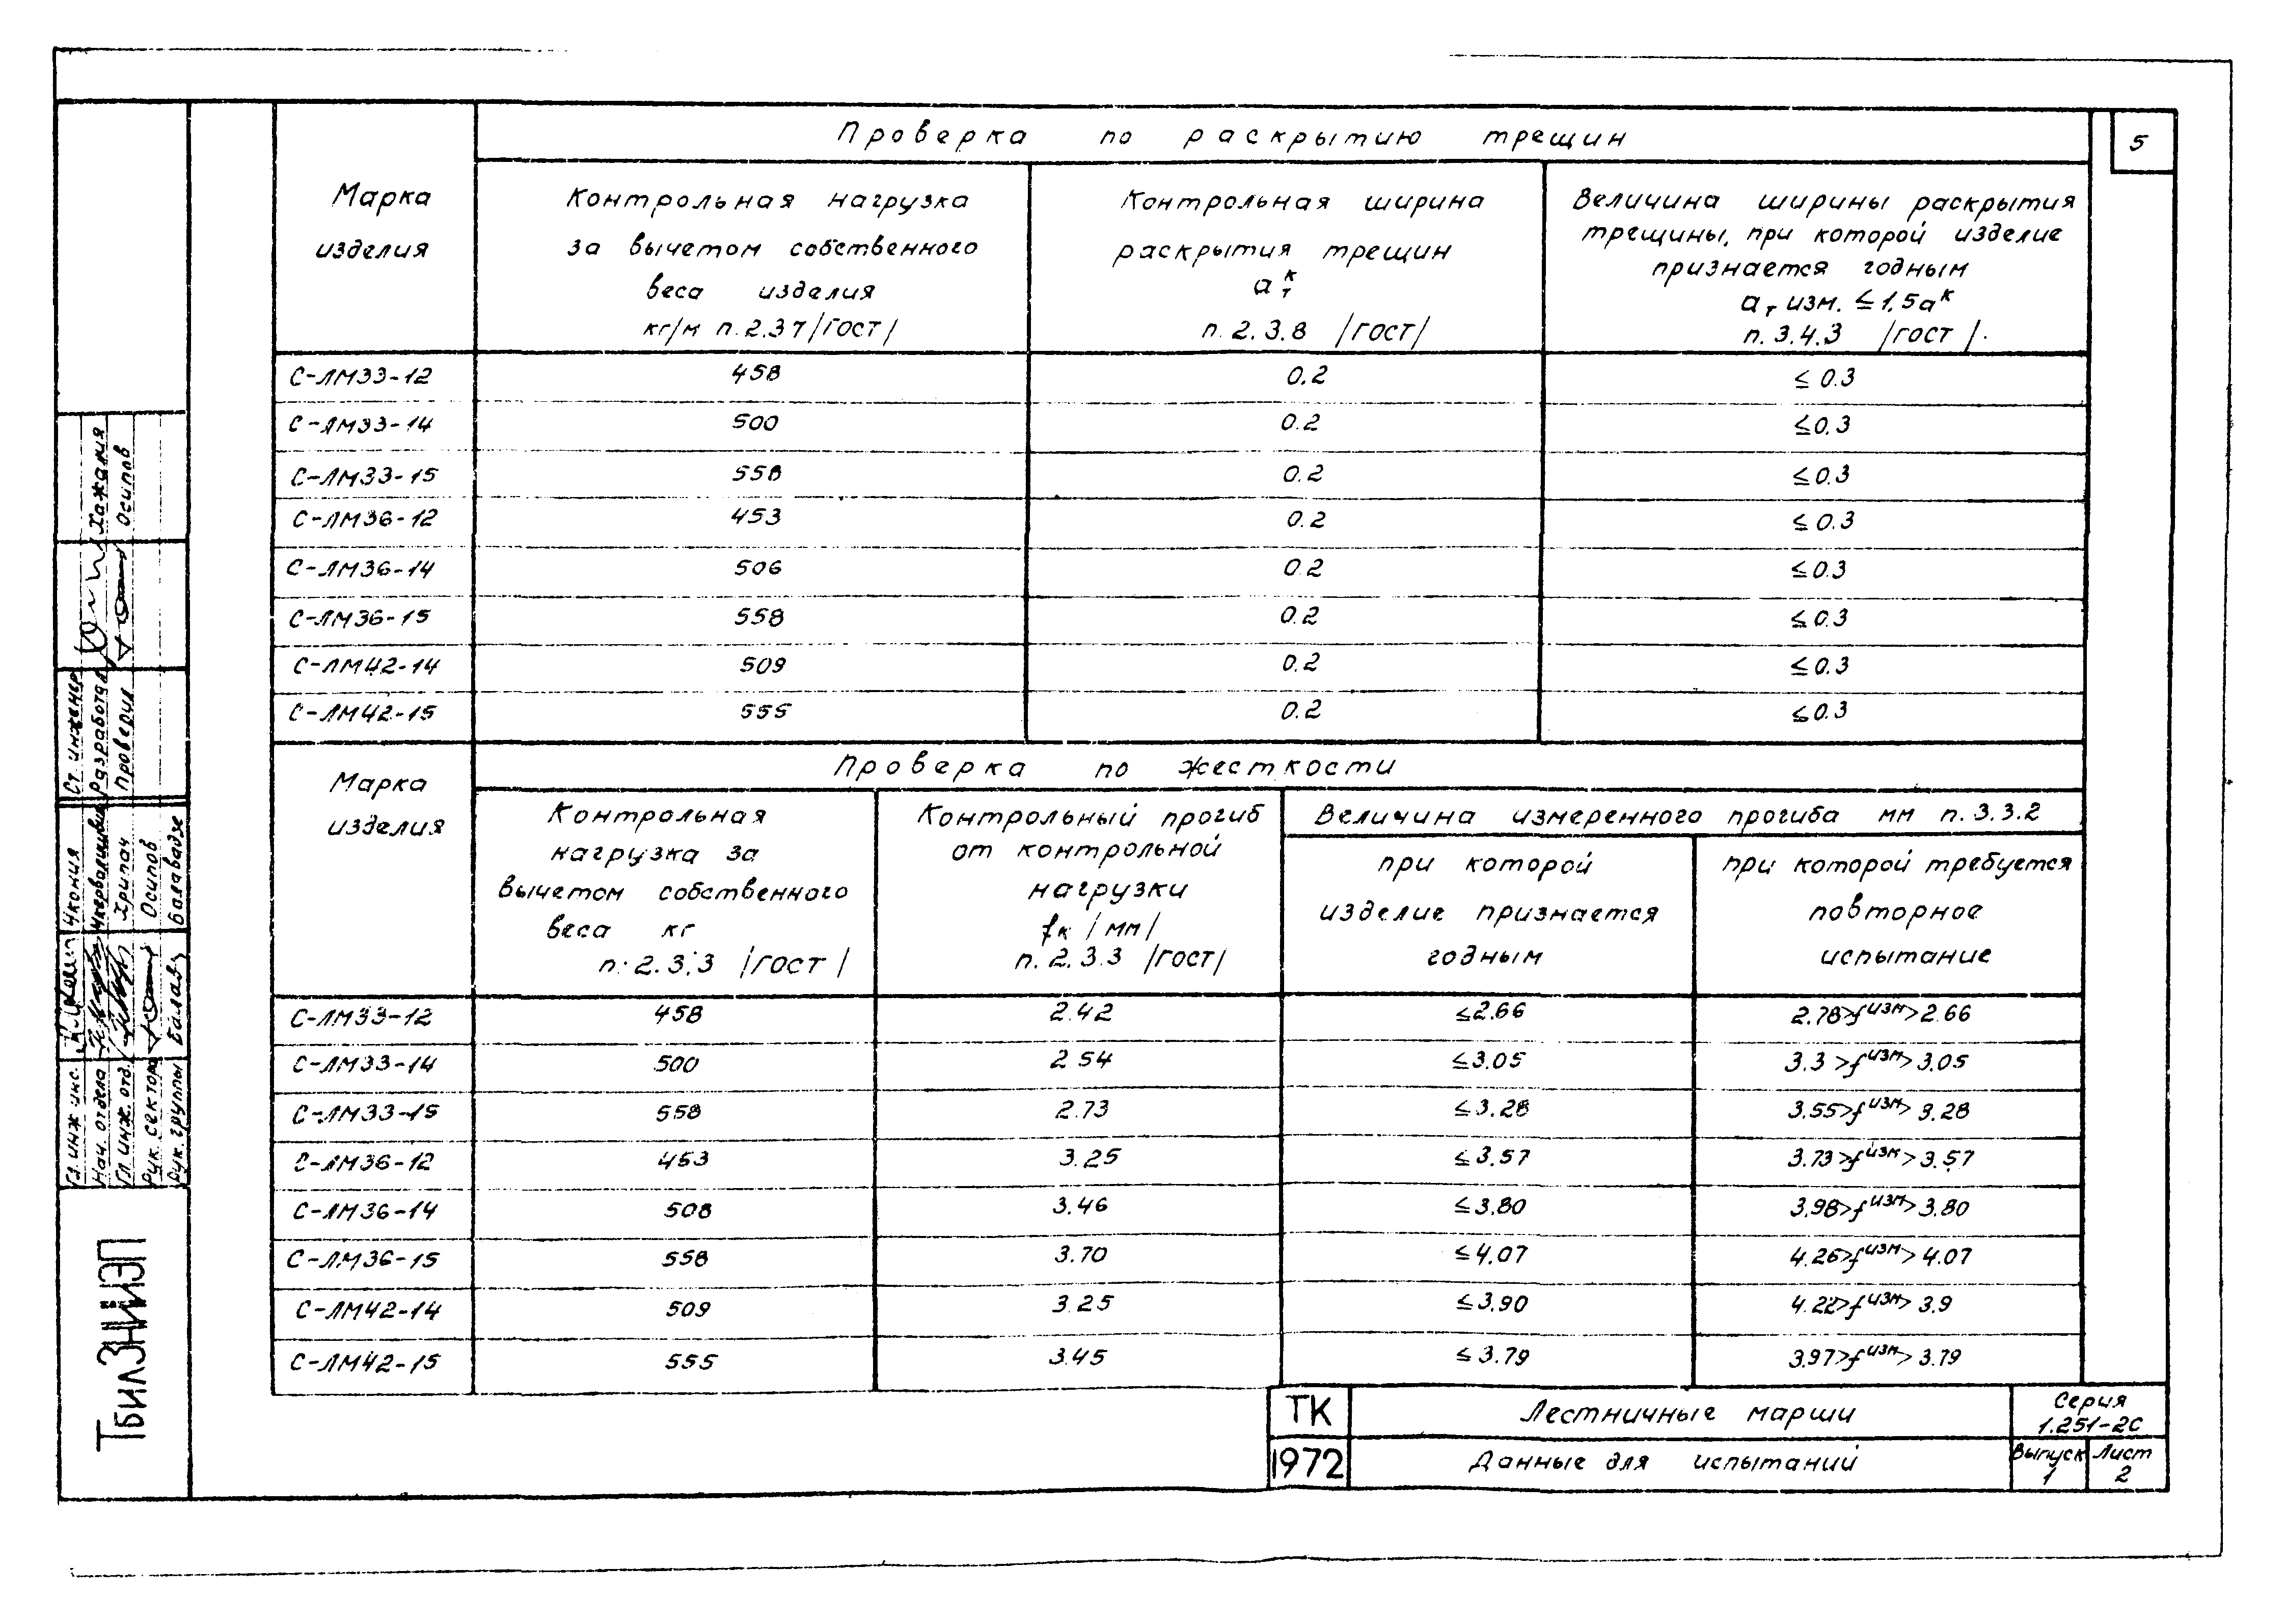 5
Проверка по раскрытию трещин
Марка
изделия
Контрольная нагрузка
за вычетом собственного
веса изделия
кг/м п. 2.37 /ГОСТ/
Контрольная ширина
раскрытия трещин
a к т
п. 2.3.8 /ГОСТ/
Величина ширины раскрытия
трещины, при которой изделие
признается годным
aт изм. ≤ 1,5aк
п. 3.4.3 /ГОСТ/.
С-ЛМ33-12 458 0.2 ≤ 0.3
С-ЛМ33-14 500 0.2 ≤0.3
С-ЛМ33-15 558 0.2 ≤0.3
С-ЛМ36-12 453 0.2 ≤0.3
С-ЛМ36-14 506 0.2 ≤0.3
С-ЛМ36-15 558 0.2 ≤0.3
С-ЛМ42-14 509 0.2 ≤0.3
С-ЛМ42-15 555 0.2 ≤0.3
Проверка по жесткости
Марка
изделия
Контрольная
нагрузка за
вычетом собственного
веса кг
п. 2.3.3 /ГОСТ/
Контрольный прогиб
от контрольной
нагрузки
fк /мм/
п. 2.3.3 /ГОСТ/
Величина измеренного прогиба мм п. 3.3.2
при которой
изделие признается
годным
при которой требуется
повторное
испытание
С-ЛМ33-12 458 2.42 ≤2.66 2.78>fизм>2.66
С-ЛМ33-14 500 2.54 ≤3.05 3.3>fизм>3.05
С-ЛМ33-15 558 2.73 ≤3.28 3.55>fизм>3.28
С-ЛМ36-12 453 3.25 ≤3.57 3.73>fизм>3.57
С-ЛМ36-14 508 3.46 ≤3.80 3.98>fизм>3.80
С-ЛМ36-15 558 3.70 ≤4.07 4.26>fизм>4.07
С-ЛМ42-14 509 3.25 ≤3.90 4.22>fизм>3.9
С-ЛМ42-15 555 3.45 ≤3.79 3.97>fизм>3.79
ТК
1972
Лестничные марши
Данные для испытаний
Серия
1.251-2С
Выпуск
1
Лист
2
Ст. инженер
Разработал Хажалия
Проверил Осипов
Гл. инж. инс. Чкония
Нач. отдела
Гл. инж. отд. Хрипач
Рук. сектора Осипов
Рук. группы Балавадзе
ТбилЗНИИЭП